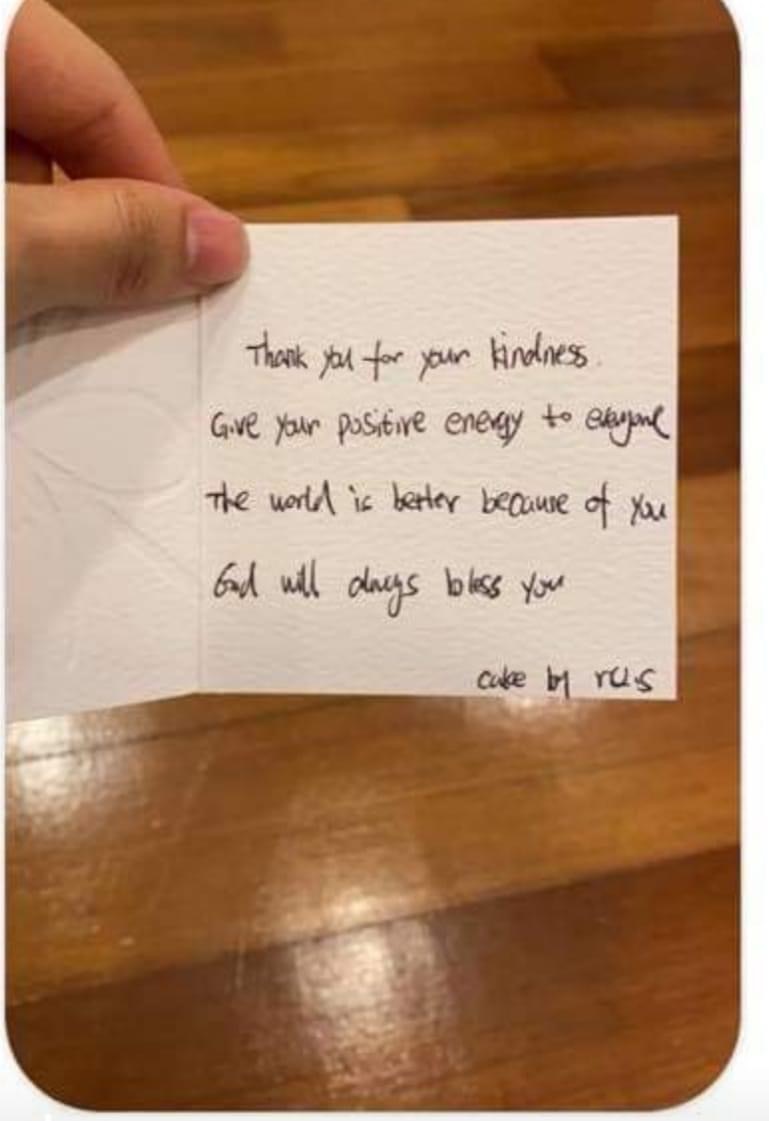 Thank you for your kindness.
Give your positive energy to everyone
The world is better because of you
God will always bless you
cake by